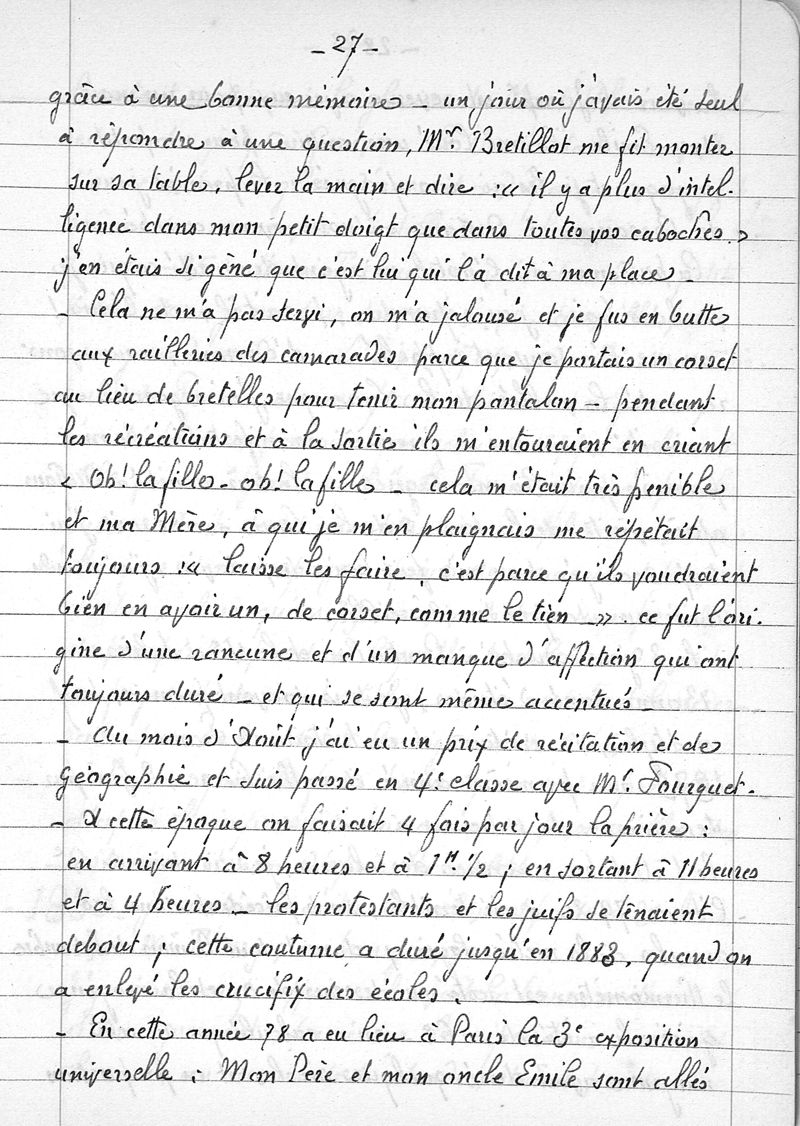 - 27 -
grâce à une bonne mémoire - un jour où j'avais été seul
à répondre à une question, Mr. Bretillot me fit monter
sur sa table, lever la main et dire : « il y a plus d'intel-
ligence dans mon petit doigt que dans toutes vos caboches. »
j'en étais si gêné que c'est lui qui l'a dit à ma place -
- Cela ne m'a pas servi, on m'a jalousé et je fus en butte
aux railleries des camarades parce que je portais un corset
au lieu de bretelles pour tenir mon pantalon - pendant
les récréations et à la sortie ils m'entouraient en criant
« Oh! la fille - oh! la fille - cela m'était très pénible
et ma Mère, à qui je m'en plaignais me répétait
toujours : « laisse les faire, c'est parce qu'ils voudraient
bien en avoir un, de corset, comme le tien ». ce fut l'ori-
gine d'une rancune et d'un manque d'affection qui ont
toujours duré - et qui se sont même accentués -
- Au mois d'Août j'ai eu un prix de récitation et de
Géographie et suis passé en 4e classe avec Mr. Fourquet.
- A cette époque on faisait 4 fois par jour la prière :
en arrivant à 8 heures et à 1H. 1/2 ; en sortant à 11 heures
et à 4 heures - les protestants et les juifs se tenaient
debout ; cette coutume a duré jusqu'en 1883, quand on
a enlevé les crucifix des écoles. -
- En cette année 78 a eu lieu à Paris la 3e exposition
universelle : Mon Père et mon oncle Emile sont allés